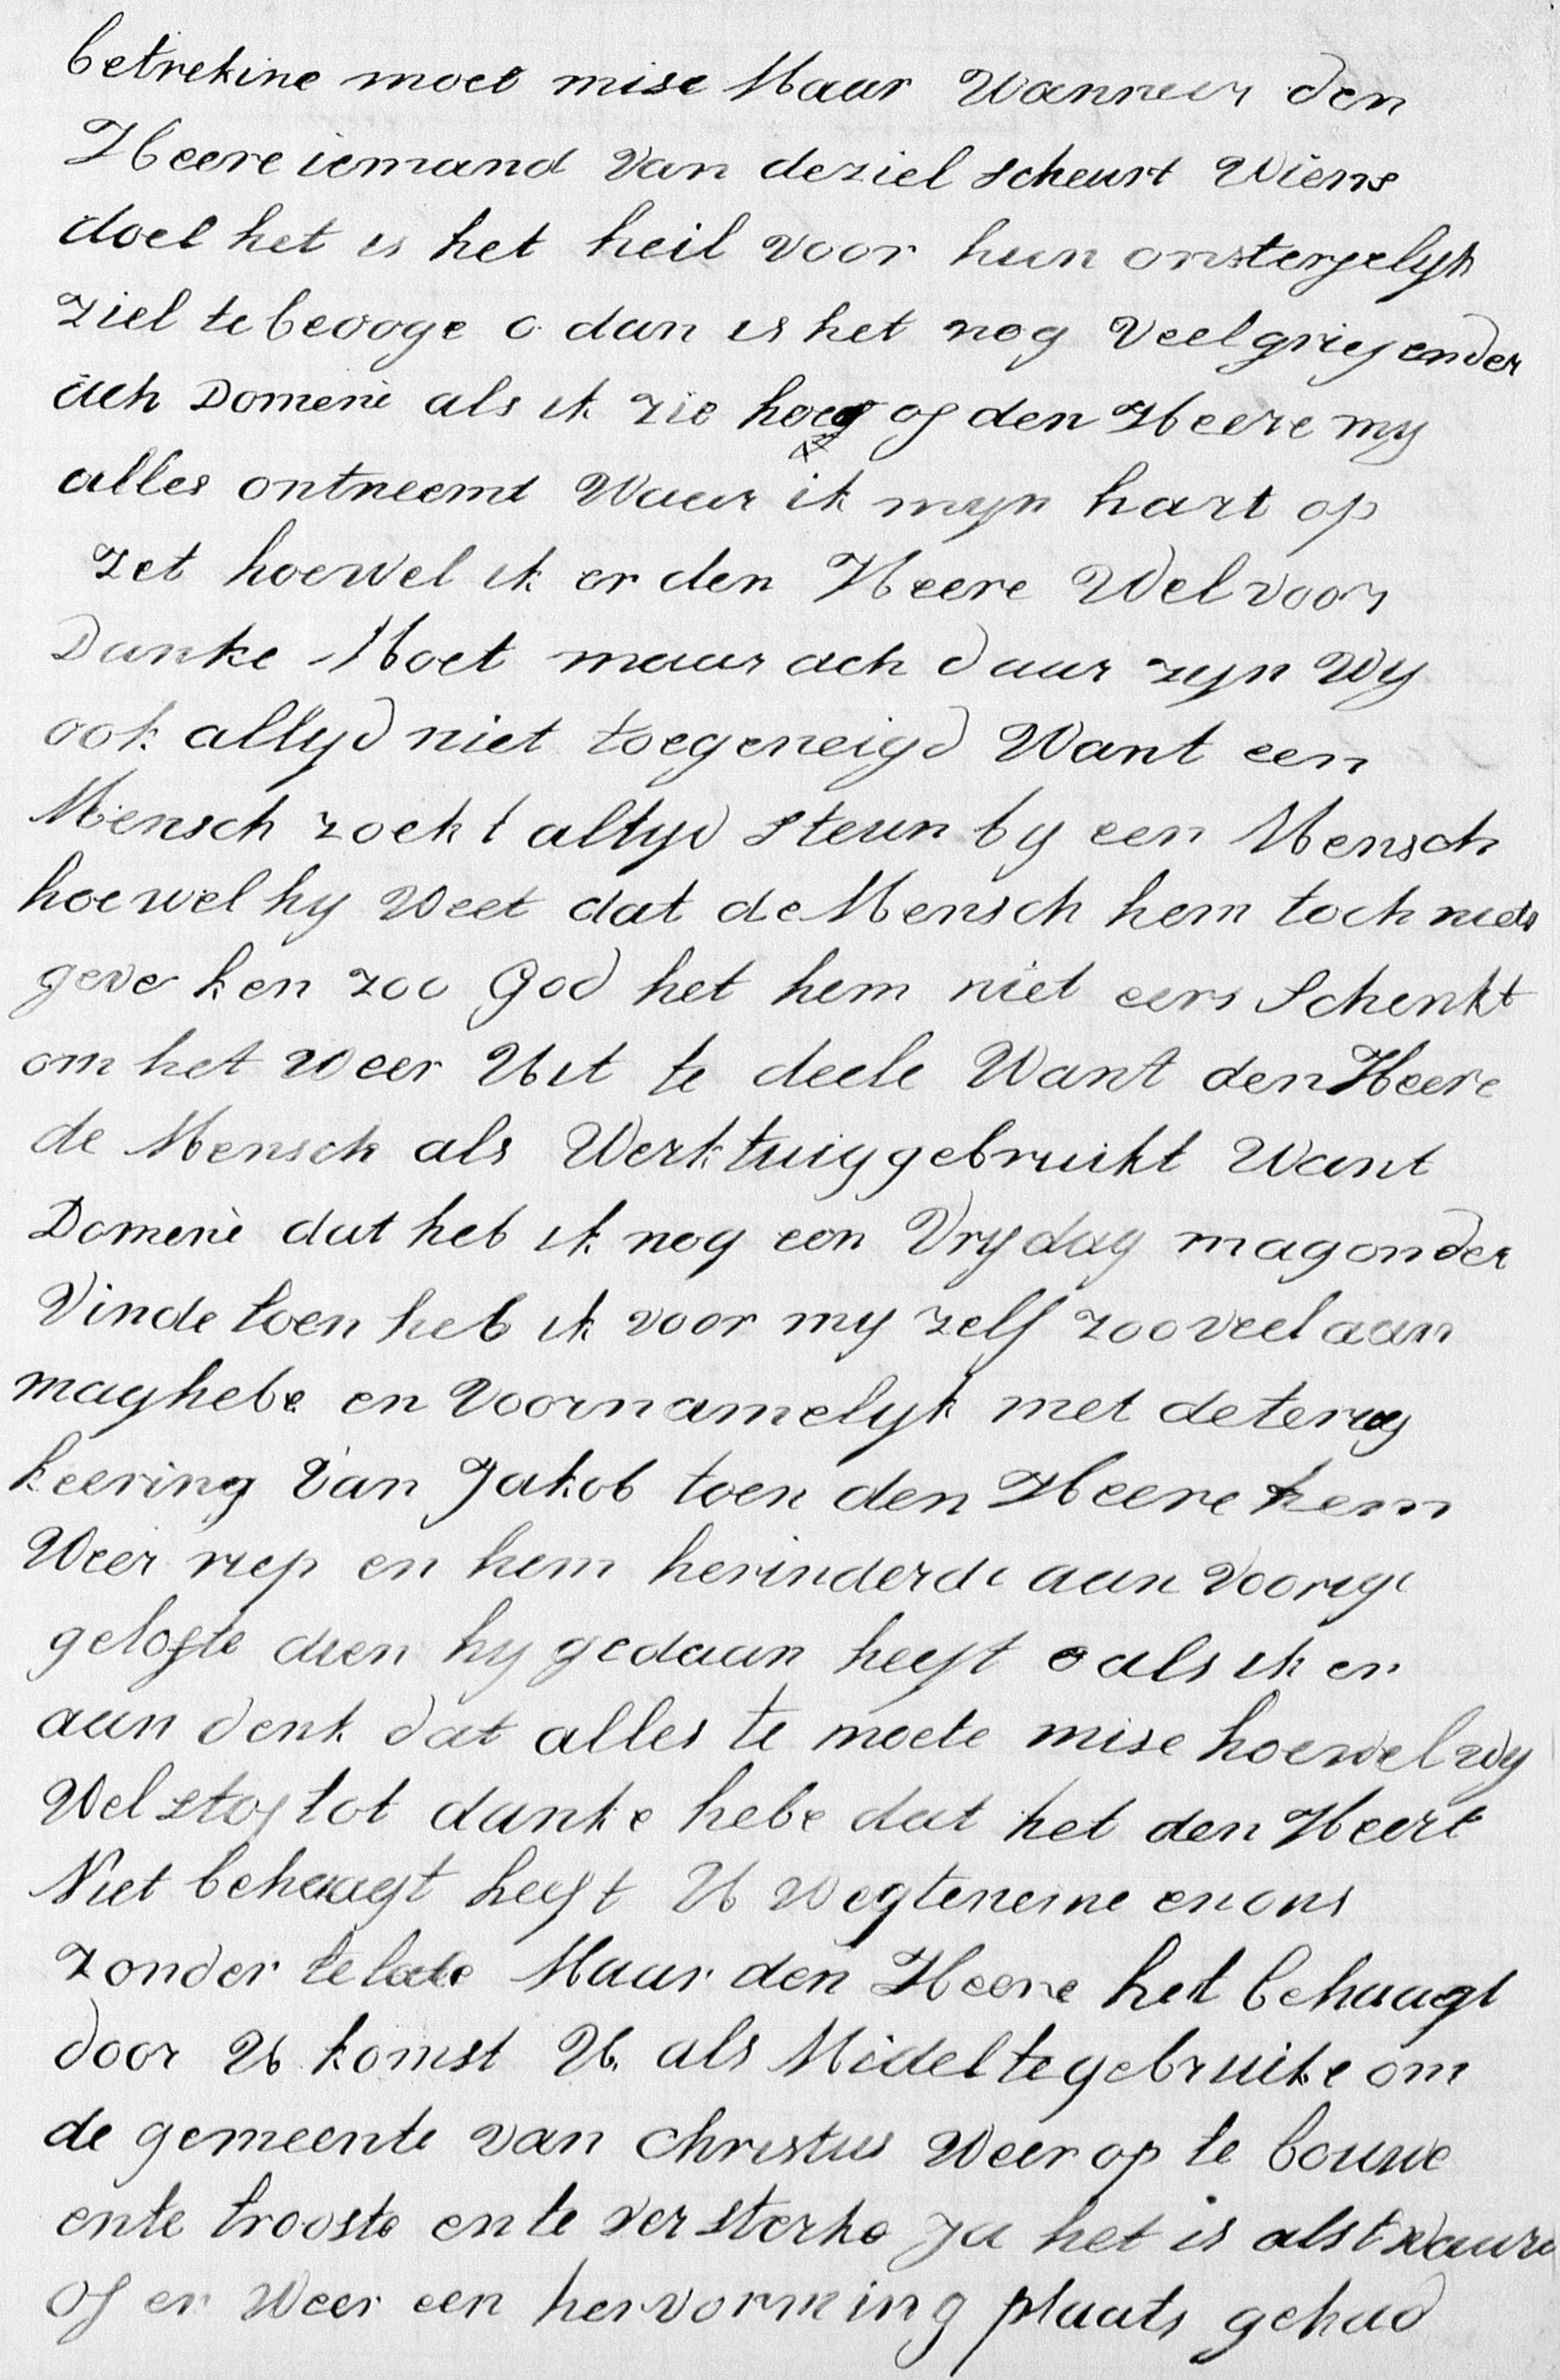 betrekine moet mise Maar Wanneer den
Heere iemand van deziel scheurt Wiens
doel het is het heil voor hun onstergelyk
ziel te beooge o dan is het nog veel griefender
ach Domenè als ik zie hoe of den Heere my
alles ontneemt Waar ik myn hart op
zet hoewel ik er den Heere Wel voor
Danke Moet maar ach daar zyn Wy
ook altyd niet toegeneigd Want een
Mensch zoekt altyd steun by een Mensch
hoewel hy Weet dat de Mensch hem toch niets
geve ken zoo God het hem niet eers Schenkt
om het weer Uit te deele Want den Heere
de Mensch als Werktuig gebruikt Want
Domenè dat heb ik nog een Vrydag mag onder
Vinde toen heb ik voor my zelf zooveel aan
mag hebe en Voornamelyk met de terug
keering Van Jakob toen den Heere hem
Weer riep en hem herinderde aan Voorige
gelofte dien hy gedaan heeft o als ik er
aan denk dat alles te moete mise hoewel wy
Wel stof tot danke hebe dat het den Heere
Niet behaagt heeft U Wegteneme en ons
zonder te late Maar den Heere het behaagt
door U komst U als Midel te gebruike om
de gemeente van Christus Weer op te bouwe
en te trooste en te versterke Ja het is als t waare
of er Weer een hervorming plaats gehad